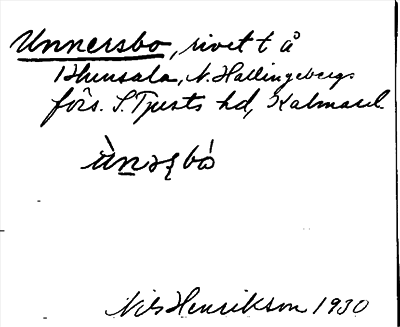 Unnersbo, rivet t å
Blumsala, N. Hallingebergs
förs. S. Tjusts hd, Kalmar l.
Nils Henrikson 1930